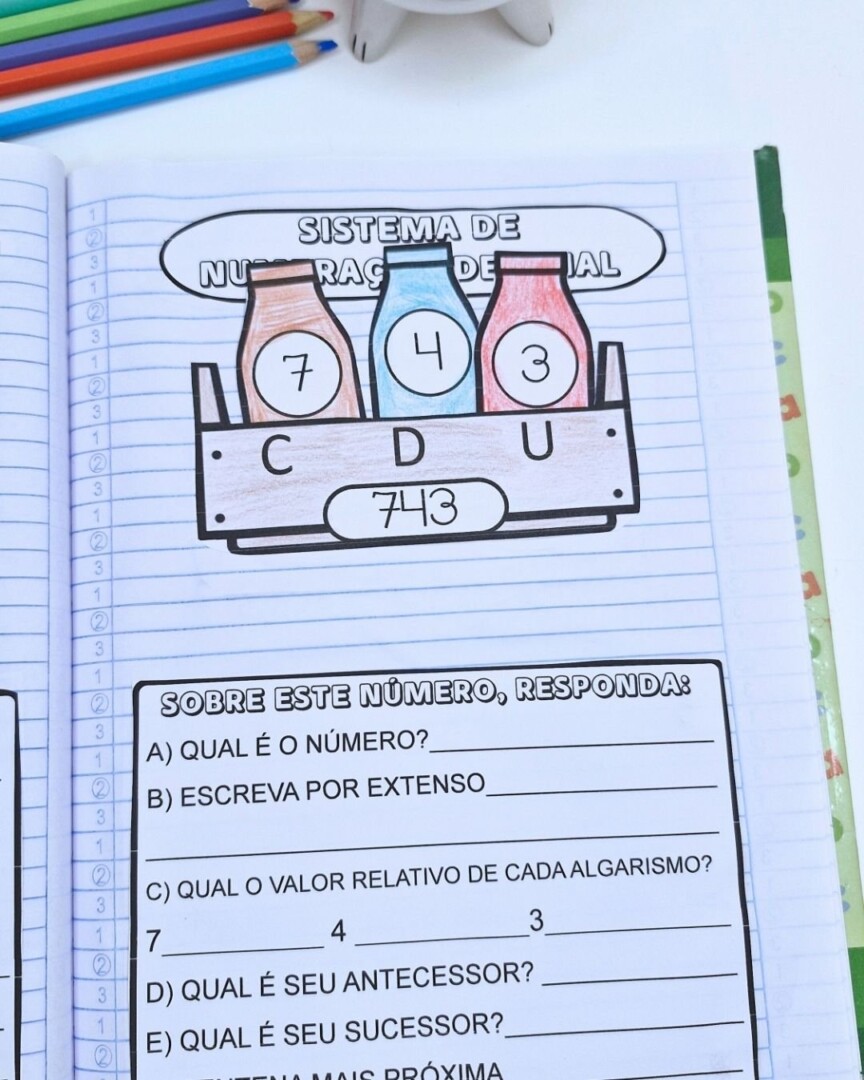 SISTEMA DE
7 4 3
C D U
743
SOBRE ESTE NÚMERO, RESPONDA:
A) QUAL É O NÚMERO?
B) ESCREVA POR EXTENSO
C) QUAL O VALOR RELATIVO DE CADA ALGARISMO?
7 4 3
D) QUAL É SEU ANTECESSOR?
E) QUAL É SEU SUCESSOR?
MAIS PRÓXIMA